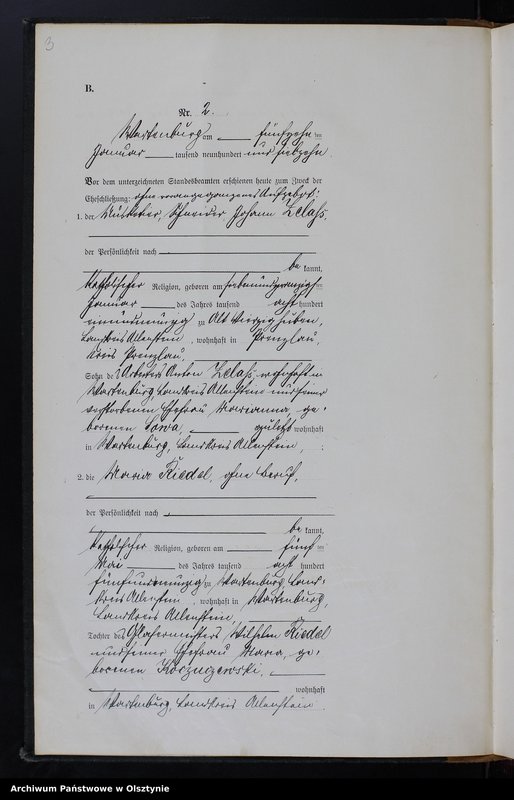 3
B.
Nr. 2.
Wartenburg am fünfzehn ten
Januar tausend neunhundert und siebzehn.
Vor dem unterzeichneten Standesbeamten erschienen heute zum Zweck der
Eheschließung: ohne vorangegangenes Aufgebot:
1. der Musketier, Schneider Johann Lelaß,
der Persönlichkeit nach
be kannt,
katholischer Religion, geboren am siebenundzwanzigsten
Januar des Jahres tausend acht hundert
einundneunzig zu Alt Vierzighuben,
Landkreis Allenstein, wohnhaft in Prenzlau,
Kreis Prenzlau,
Sohn des Arbeiters Anton Lelaß, wohnhaft in
Wartenburg, Landkreis Allenstein und seiner
verstorbenen Ehefrau Marianna, ge-
borenen Sowa, zuletzt wohnhaft
in Wartenburg, Landkreis Allenstein, ;
2. die Maria Riedel, ohne Beruf,
der Persönlichkeit nach
be kannt,
katholischer Religion, geboren am fünf ten
Mai des Jahres tausend acht hundert
fünfundneunzig zu Wartenburg, Land-
kreis Allenstein, wohnhaft in Wartenburg,
Landkreis Allenstein,
Tochter des Glasermeisters Wilhelm Riedel
und seiner Ehefrau Maria, ge-
borenen Korzuczewski,
wohnhaft
in Wartenburg, Landkreis Allenstein.
Archiwum Państwowe w Olsztynie